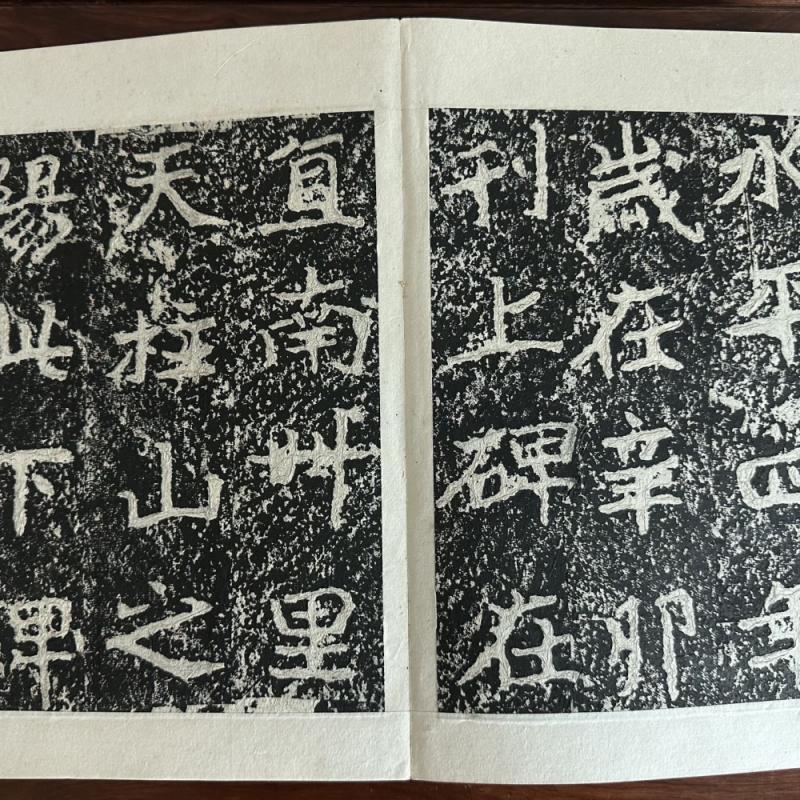 永平四年
歲在辛卯
刊上碑在
直南卌里
天柱山之
陽此下碑